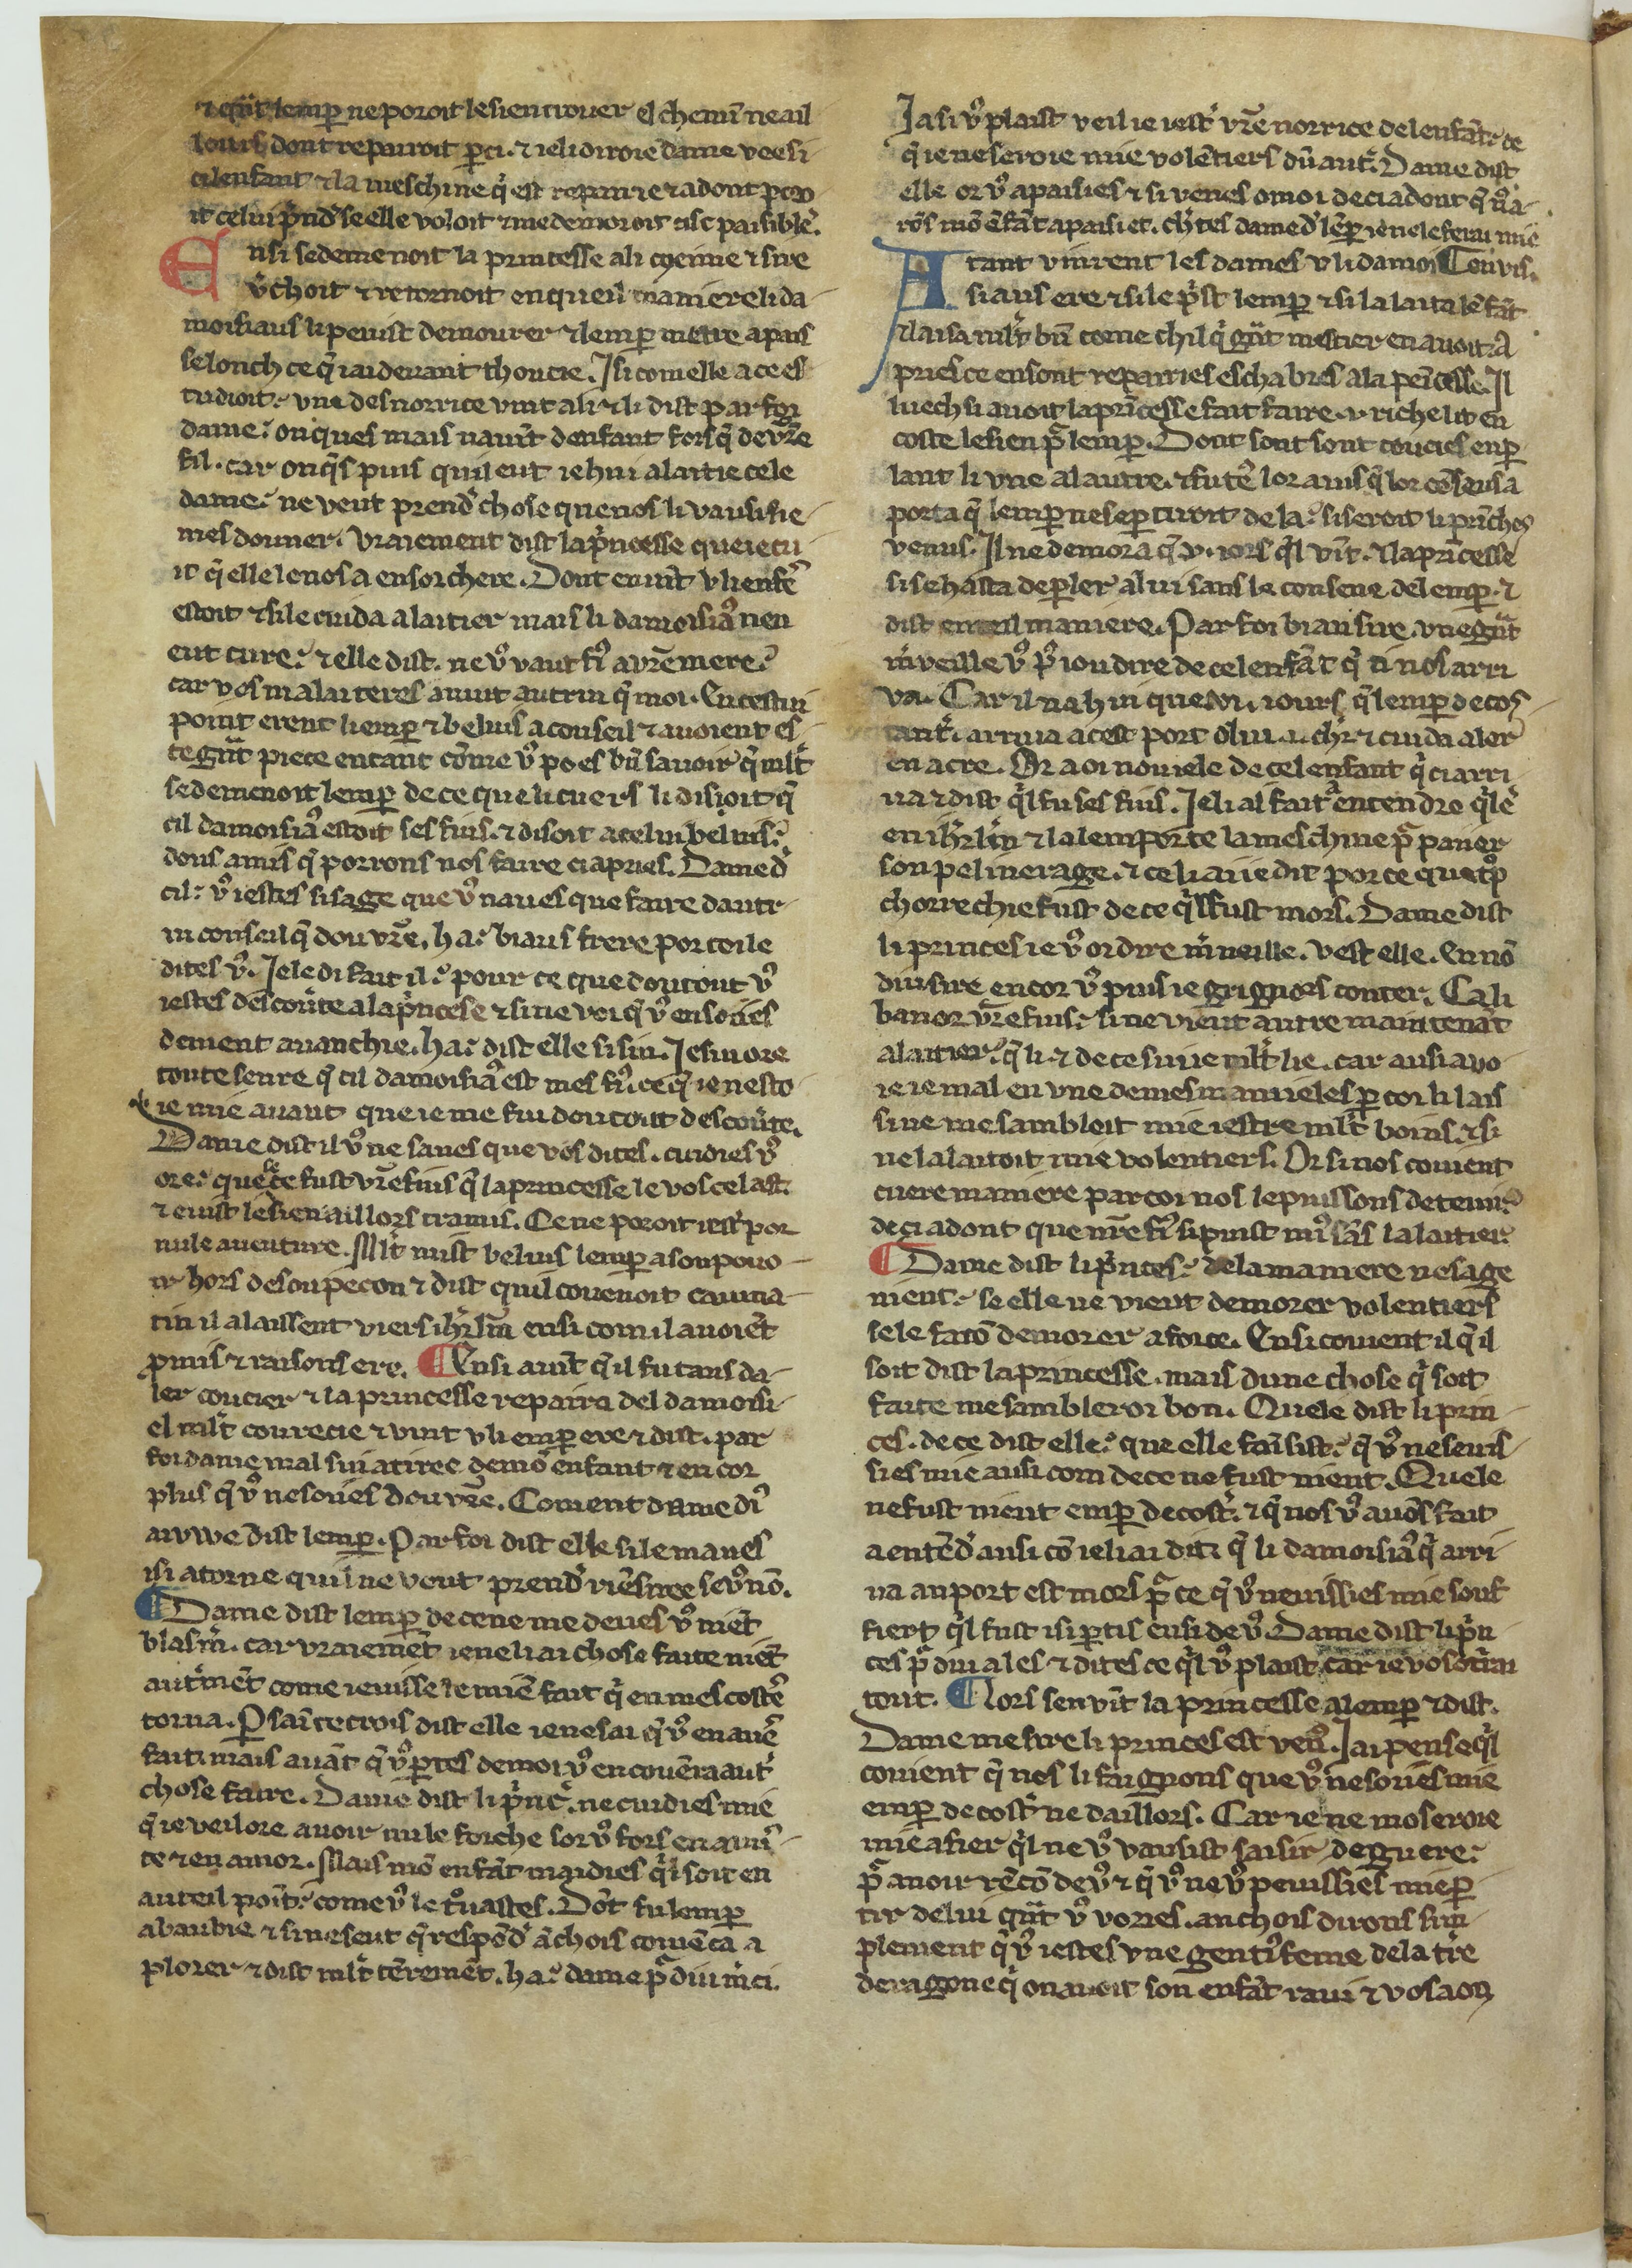 ⁊ qũt lemp̲ ne poroit le sien trouer el chemĩ ne ail
lours dont repairroit p̲ ci. ⁊ ie li diroie dame vees i
cil enfant ⁊ la meschine q̃ est reparrie ⁊ adont
it celui p̃nd̾ se elle voloit ⁊ me demoroit paisiblẽ.
Ensi se demenoit la princesse a li meime ⁊ sire
v̾choit ⁊ retornoit en queil maniere li da-
moisiaus li peuist demourer ⁊ lemp̲ metre a pais
selonch ce q̃ iai deuant thoucie. Isi com elle a ce es
tudioit. vne des norrice vint a li ⁊ li dist par foi
dame. onques mais nauĩt denfant fors q̃ de vr̃e
fil. car onq̃s puis quil eut iehui alaitie cele
dame. ne veut prend̾ chose que nos li vausisie-
mes donner. Vraiement dist la p̃ncesse que ie cu
it q̃ elle le nos a ensorchere. Dont en uĩt v li enfẽ
estoit ⁊ si le cuida alaitier mais li damoisiaꝰ nen
eut cure. ⁊ elle dist. ne vꝰ vaut fiꝰ a vr̃e mere.
car vos in alaiteres auut autrui q̃ moi. En cestui
point erent lemp̲ ⁊ beluis a conseil ⁊ auoient es-
te gñt piece en tant cõme vꝰ poes bñ sauoir q̃ mlt̃
se demenoit lemp̲ de ce que li cuers li disioit q̃
cil damoisiaꝰ estoit ses fius. ⁊ disoit a celui beluis.
dous amis q̃ porrons nos faire ci apries. Dame d̾
cil. vꝰ iestes si sage que vꝰ naues que faire dautr-
ui conseil q̃ dou vr̃e. ha. biaus frere por coi le
dites vꝰ. Ie le di fait il. pour ce que dou tout vꝰ
iestes descoũte a la p̃ncese ⁊ si ne voi q̃ vꝰ en soiies
dement auanchie. ha. dist elle si sui. Ie sui ore
toute seure q̃ cil damoisiaꝰ est mes fiꝰ. ce q̃ ie nesto
ie mie auant que ie me fui dou tout descoũte.
Dame dist il vꝰ ne saues que vos dites. cuidies vꝰ
ore. que ce fust vr̃e fuis q̃ la princesse le vos celast.
⁊ euist le sien aillors tramis. Ce ne poroit iestr̾ por
nule auenture. Mlt̃ mist beluis lemp̲ a son pouo-
ir hors de soupecon ⁊ dist quil couenoit caiuna-
tin il alaissent viers ih̃rlm̃ ensi com il auoiẽt
p̃mis ⁊ raisons ere. ¶ Ensi auĩt q̃ il fu tans da-
ler coucier ⁊ la princesse repaira del damoisi-
el mlt̃ courecie ⁊ vint v li emp̲ ere ⁊ dist. par
foi dame mal sui atiree de mõ enfant ⁊ encor
plus q̃ vꝰ ne soiies dou vr̃e. Coment dame diꝰ
aiuwe dist lemp̲. Par foi dist elle si le maues
isi atorne quil ne veut prend̾ riẽs nee se vꝰ nõ.
¶ Dame dist lemp̲ de ce ne me deues vꝰ niẽt
blasm̃. car vraiemẽt ie ne li ai chose faite niẽt
autr̃mẽt come ieuisse le miẽ fait q̃ en mes costẽ
torna. P saĩte crois dist elle ie ne sai q̃ vꝰ en auẽ
fait. mais auãt q̃ vꝰ p̲tes de moi vꝰ en couẽra autr̾
chose faire. Dame dist li p̃nc̾. ne cuidies mie
q̃ ie veil ore auoir nule forche sor vꝰ fors en amiꝰ-
te ⁊ en amor. Mais mõ enfãt maidies q̃l soit en
auteil poĩt. come vꝰ le tr̾uastes. Dõt fu lemp̲
abaubie ⁊ si ne seut q̃ respõd̾ ãchois comẽca a
plorer ⁊ dist mlt̃ tẽremẽt. ha. dame p̃ diu m̃ci.
Ia si vꝰ plaist veil ie iestr̾ vr̃e norrice del enfãt. de
q̃ ie ne seroie mie volẽtiers dũ autr̾. Dame dist
elle or vꝰ apaisies ⁊ si venes o moi deci adont q̃ nꝰ a-
rõs mõ ẽfãt apaisiet. ch̾tes dame d̾ lẽp̲ ie ne le ferai mie
Atant vinrent les dames v li damoi Couuis.
siaus ere ⁊ si le p̃st lemp̲ ⁊ si lalaita lẽfãt
⁊ laisa mlt̾ bñ come chil q̃ gñt mestier en auoit. A
pries ce en sont reparries es chãbres a la p̃incesse. Il
luech si auoit la prĩcesse fait faire .i. riche lit en
coste le sien p̃ lemp̲. Dont sont sont coucies en p̲
lant li vne a lautre. ⁊ fu tẽ lor auis q̃ lor cõsens a
porta q̃ lemp̲ ne se p̲tiroit de la. si seroit li prĩches
venus. Il ne demora q̃ .v. iors q̃l vĩt. ⁊ la prĩcesse
si se hasta de p̲ler a lui sans le conseue de lemp̲. ⁊
dist en teil maniere. Par foi biau sire. vne gñt
m̃veille vꝰ p̾ iou dire de cel enfãt q̃ ci nos arri
va. Car il na hui que .xvi. iours q̃ lemp̲ de cos
tant̾. arriua a cest port o lui .ii. ch̾r ⁊ cuida aler
en acre. Or a oi nouiele de cel enfant q̃ ci arri
ua ⁊ dist q̃l fu ses fius. Ie li ai fait entendre q̃l ẽ
en ih̃rlm̃ ⁊ la lemporte la meschine p̃ parier
son pelinerage. ⁊ ce li ai ie dit por ce que trop
chorrechie fust de ce q̃l fust mors. Dame dist
li princes ie vꝰ oi dire m̃ueille. vest elle. En nõ
diu sire encor vꝰ puis ie grignors conter. Ca li
banor vr̃e fuis. si ne vient autre maintenãt
alaitier. q̃ li ⁊ de ce sui ie mlt̃ lie. car ausi auo
ie ie mal en vne de mes mamieles p̲ coi li lais
si ne me sambloit mie iestre mlt̃ boins. ⁊ si
ne lalaitoit mie volentiers. Or si nos couient
cuere maniere par coi nos le puissons detenir
deci adont que nr̃e fiꝰ si puist miꝰ sãs lalaitier.
¶ Dame dist li p̃nces. de la maniere ne sage
nient. se elle ne vient demorer volentiers
se le farõ demorer a force. Ensi couient il q̃ il
soit dist la princesse. mais dune chose q̃ soit
faite me sambleroi bon. Quele dist li prin-
ces. de ce dist elle. que elle fausist. q̃ vꝰ ne seuis-
sies mie ausi com de ce ne fust nient. Quele
ne fust nient emp̲ de cost̾. ⁊ q̃ nos vꝰ auõs fait
a entẽd̾ ausi cõ ie li ai dit. q̃ li damoisiaꝰ q̃ arri-
ua au port est mors p̃ ce q̃ vꝰ neuissies mie souf
fiert q̃l fust isi p̲tis ensi de vꝰ. Dame dist li p̃n
ces p̃ diu ales ⁊ dites ce q̃l vꝰ plaist car ie vos otri
tout. ¶ Lors sen vĩt la princesse a lemp̲ ⁊ dist.
Dame me sire li princes est venꝰ. Iai pense q̃l
couient q̃ nos li faignons que vꝰ ne soiies mie
emp̲ de cost̾ ne daillors. Car ie ne moseroie
mie afier q̃l ne vꝰ vausist saisir de guere.
p̃ auoir rẽcõ de vꝰ ⁊ q̃ vꝰ ne vꝰ peuissies mie p̲
tir de lui qñt vꝰ vories. anchois dirons sim-
plement q̃ vꝰ iestes vne gentiꝰ feme de la tr̃e
deragone q̃ on auoit son enfãt raui ⁊ vos aoꝫ